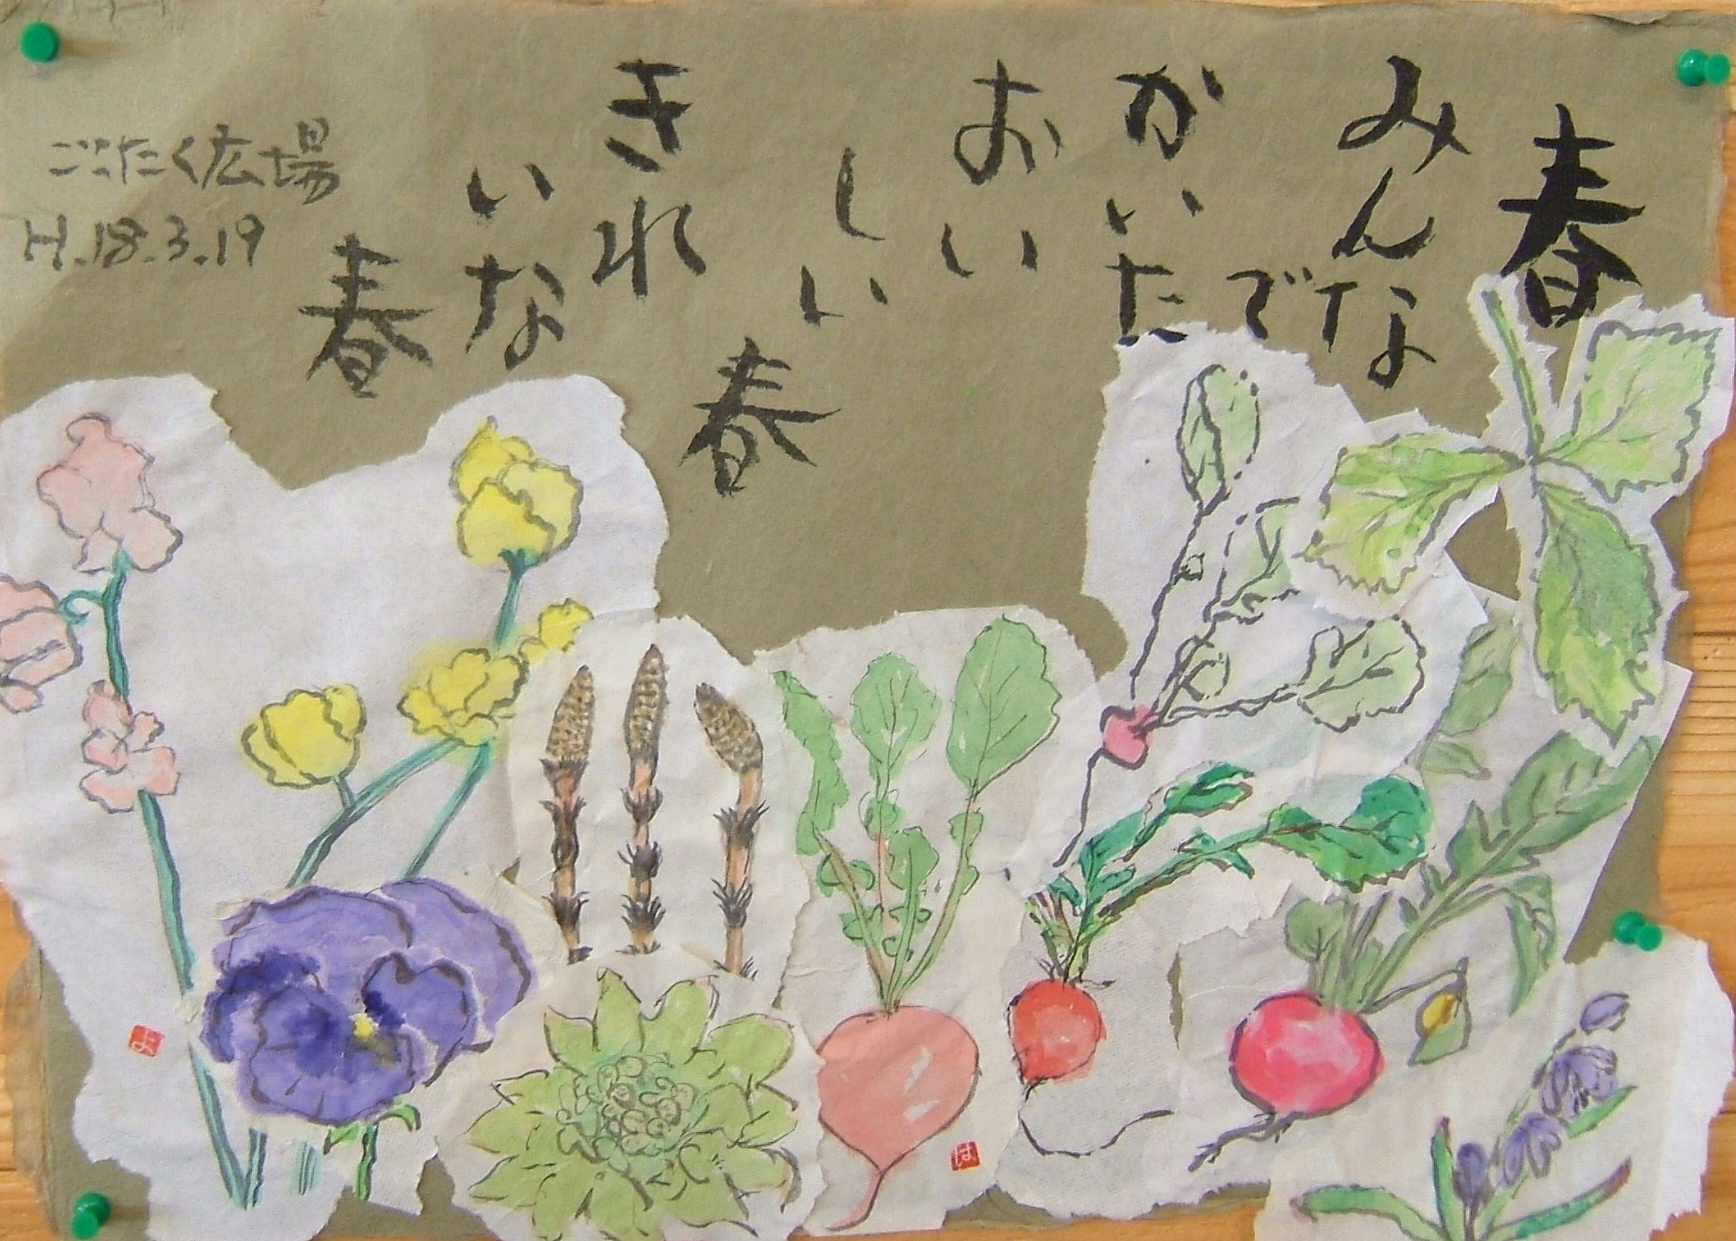 春
みんな
で
かいた
おい
しい
春
きれ
いな
春
ごこたく広場
H.18.3.19
は